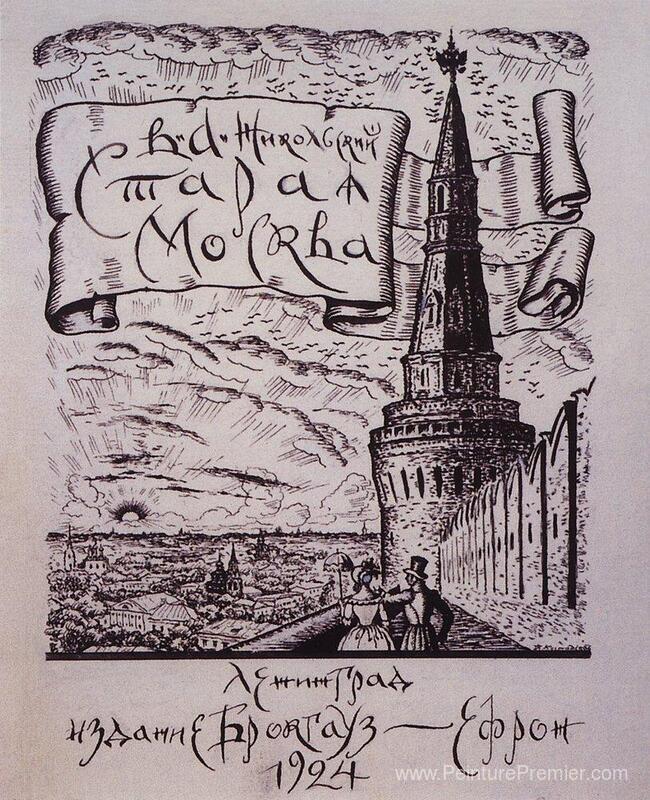 В. А. Никольский
Старая
Москва
Ленинград
издание Брокгауз — Ефрон
1924
www.PeinturePremier.com